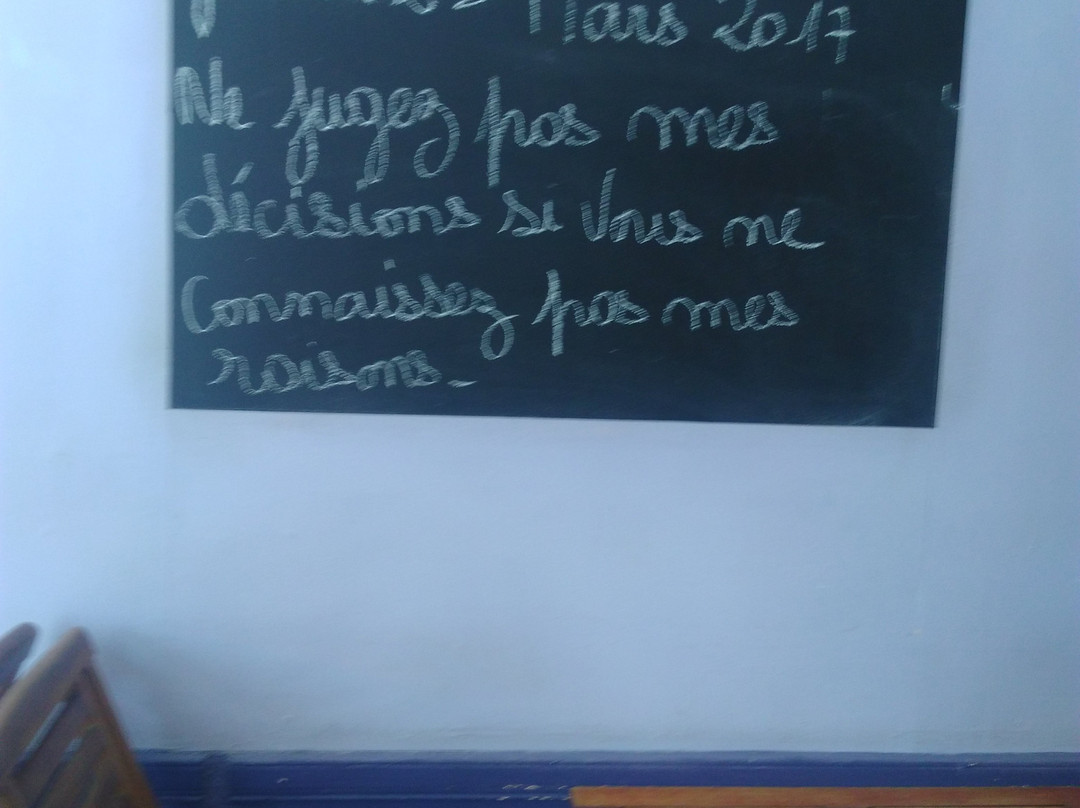 Mars 2017
Ne jugez pas mes
décisions si Vous ne
Connaissez pas mes
raisons.